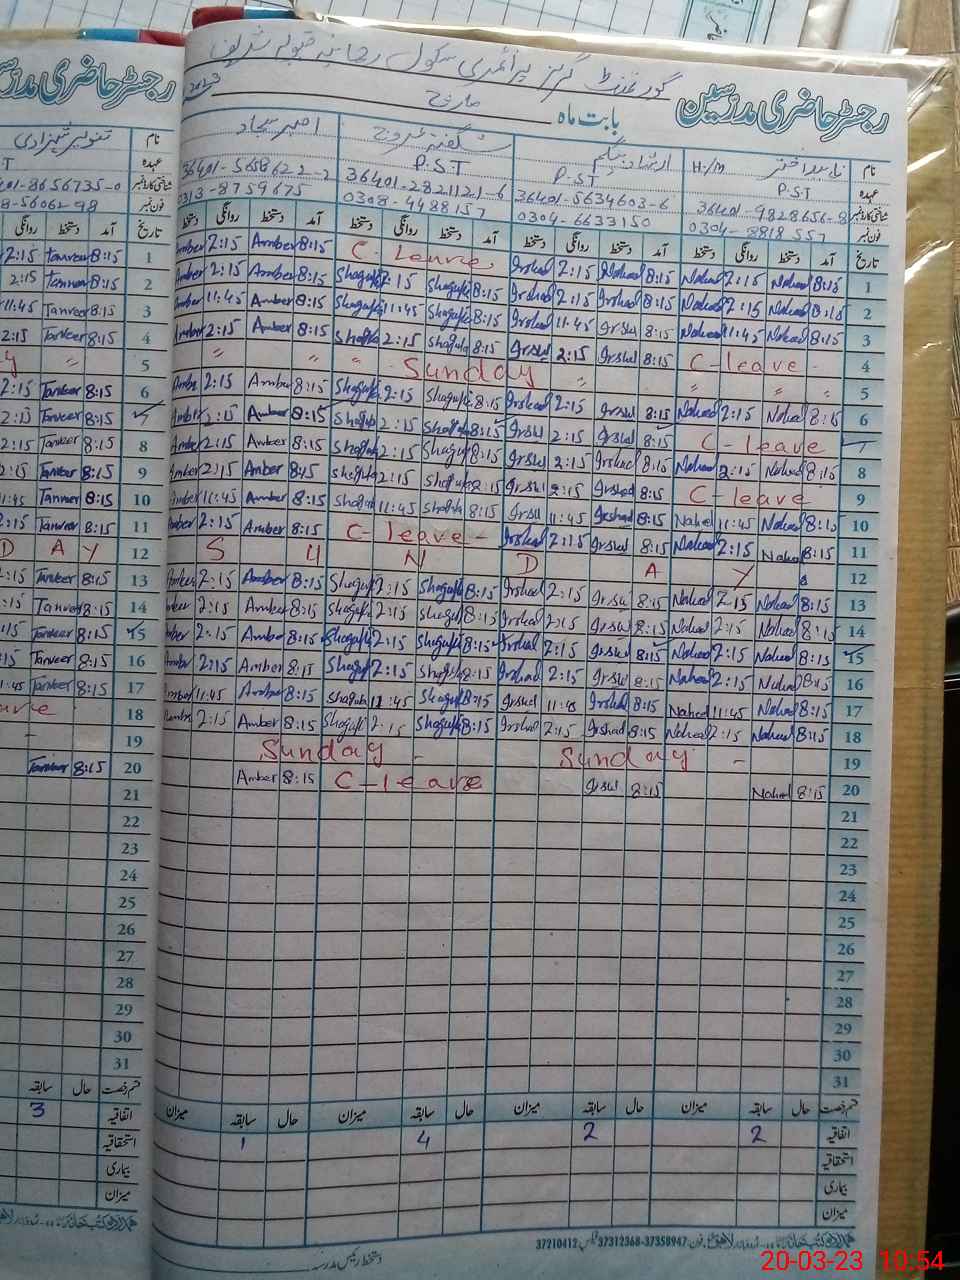 گورنمنٹ گرلز پرائمری سکول
2023
مارچ
رجسٹر حاضری مدرسین بابت ماہ
نام H/M ارشاد بیگم شگفتہ عروج امبر سجاد
عہدہ P.S.T P-S-T P.S.T
شناختی کارڈ نمبر 36401-9828656-8 36401-5634603-6 36401-2821121-6 36401-5658622-2
فون نمبر 0304-8818557 0304-6633150 0308-4488157 0313-8759675
تاریخ آمد دستخط روانگی دستخط آمد دستخط روانگی دستخط آمد دستخط روانگی دستخط آمد دستخط روانگی دستخط
1 8:15 Naheed 2:15 Naheed 8:15 2:15 Irshad C-Leave 8:15 Amber 2:15 Amber
2 8:15 Naheed 2:15 Naheed 8:15 Irshad 2:15 Irshad 8:15 Shagufta 2:15 Shagufta 8:15 Amber 2:15 Amber
3 8:15 Naheed 11:45 Naheed 8:15 Irshad 11:45 Irshad 8:15 Shagufta 11:45 Shagufta 8:15 Amber 11:45 Amber
4 C-leave 8:15 Irshad 2:15 Irshad 8:15 Shagufta 2:15 Shagufta 8:15 Amber 2:15 Amber
5 Sunday
6 8:15 Naheed 2:15 Naheed 8:15 Irshad 2:15 Irshad 8:15 Shagufta 2:15 Shagufta 8:15 Amber 2:15 Amber
7 C-leave 8:15 Irshad 2:15 Irshad 8:15 Shagufta 2:15 Shagufta 8:15 Amber 2:15 Amber
8 8:15 Naheed 2:15 Naheed 8:15 Irshad 2:15 Irshad 8:15 Shagufta 2:15 Shagufta 8:15 Amber 2:15 Amber
9 C-leave 8:15 Irshad 2:15 Irshad 8:15 Shagufta 2:15 Shagufta 8:15 Amber 2:15 Amber
10 8:15 Naheed 11:45 Naheed 8:15 Irshad 11:45 Irshad 8:15 Shagufta 11:45 Shagufta 8:15 Amber 11:45 Amber
11 8:15 Naheed 2:15 Naheed 8:15 Irshad 2:15 Irshad C-leave 8:15 Amber 2:15 Amber
12 S U N D A Y
13 8:15 Naheed 2:15 Naheed 8:15 Irshad 2:15 Irshad 8:15 Shagufta 2:15 Shagufta 8:15 Amber 2:15 Amber
14 8:15 Naheed 2:15 Naheed 8:15 Irshad 2:15 Irshad 8:15 Shagufta 2:15 Shagufta 8:15 Amber 2:15 Amber
15 8:15 Naheed 2:15 Naheed 8:15 Irshad 2:15 Irshad 8:15 Shagufta 2:15 Shagufta 8:15 Amber 2:15 Amber
16 8:15 Naheed 2:15 Naheed 8:15 Irshad 2:15 Irshad 8:15 Shagufta 2:15 Shagufta 8:15 Amber 2:15 Amber
17 8:15 Naheed 11:45 Naheed 8:15 Irshad 11:45 Irshad 8:15 Shagufta 11:45 Shagufta 8:15 Amber 11:45 Amber
18 8:15 Naheed 2:15 Naheed 8:15 Irshad 2:15 Irshad 8:15 Shagufta 2:15 Shagufta 8:15 Amber 2:15 Amber
19 Sunday Sunday
20 8:15 Naheed 8:15 Irshad C-leave 8:15 Amber
21
22
23
24
25
26
27
28
29
30
31
قسم رخصت حال سابقہ میزان حال سابقہ میزان حال سابقہ میزان حال سابقہ میزان
اتفاقیہ 2 2 4 1
استحقاقیہ
بیماری
میزان
37210412 37312368-37358947
دستخط رئیس مدرسہ
رجسٹر حاضری مدرسین
نام
عہدہ
شناختی کارڈ نمبر 8656735-0
فون نمبر 5606298
تاریخ آمد دستخط روانگی
1 8:15 Tanveer 2:15
2 8:15 Tanveer 2:15
3 8:15 Tanveer 11:45
4 8:15 Tanveer 2:15
5
6 8:15 Tanveer 2:15
7 8:15 Tanveer 2:15
8 8:15 Tanveer 2:15
9 8:15 Tanveer 2:15
10 8:15 Tanveer
11 8:15 Tanveer
12 D A Y
13 8:15 Tanveer
14 8:15 Tanveer
15 8:15 Tanveer
16 8:15 Tanveer
17 8:15 Tanveer
18
19
20 8:15 Tanveer
21
22
23
24
25
26
27
28
29
30
31
قسم رخصت حال سابقہ
اتفاقیہ 3
استحقاقیہ
بیماری
میزان
20-03-23 10:54